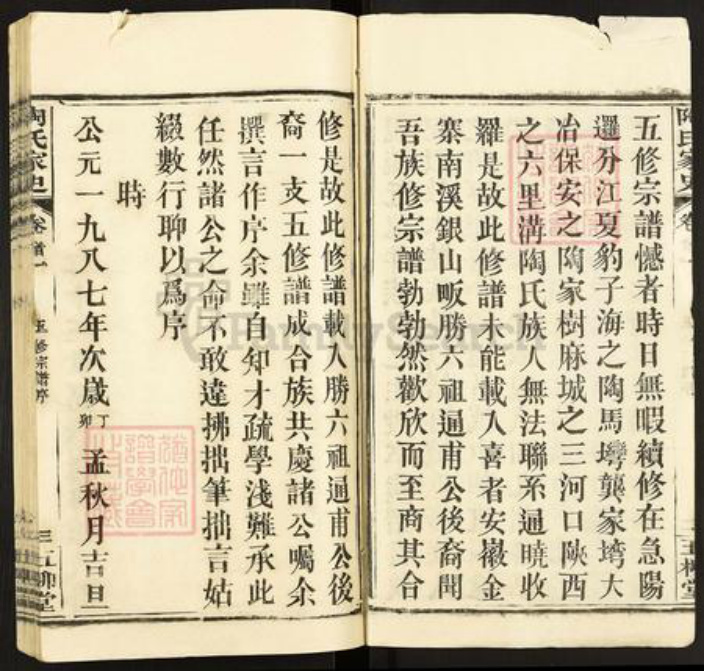 五修宗譜憾者時日無暇續修在急陽
邏分江夏豹子海之陶馬塆龔家塆大
冶保安之陶家樹麻城之三河口陝西
之六里溝陶氏族人無法聯系通曉收
羅是故此修譜未能載入喜者安徽金
寨南溪銀山畈勝六祖逦甫公後裔聞
吾族修宗譜勃勃然歡欣而至商其合
修是故此修譜載入勝六祖逦甫公後
裔一支五修譜成合族共慶諸公囑余
撰言作序余雖自知才疏學淺難承此
任然諸公之命不敢違拂拙筆拙言姑
綴數行聊以爲序
時
公元一九八七年次歲丁卯孟秋月吉旦
陶氏家史
卷首一
五修宗譜序
五柳堂
FamilySearch